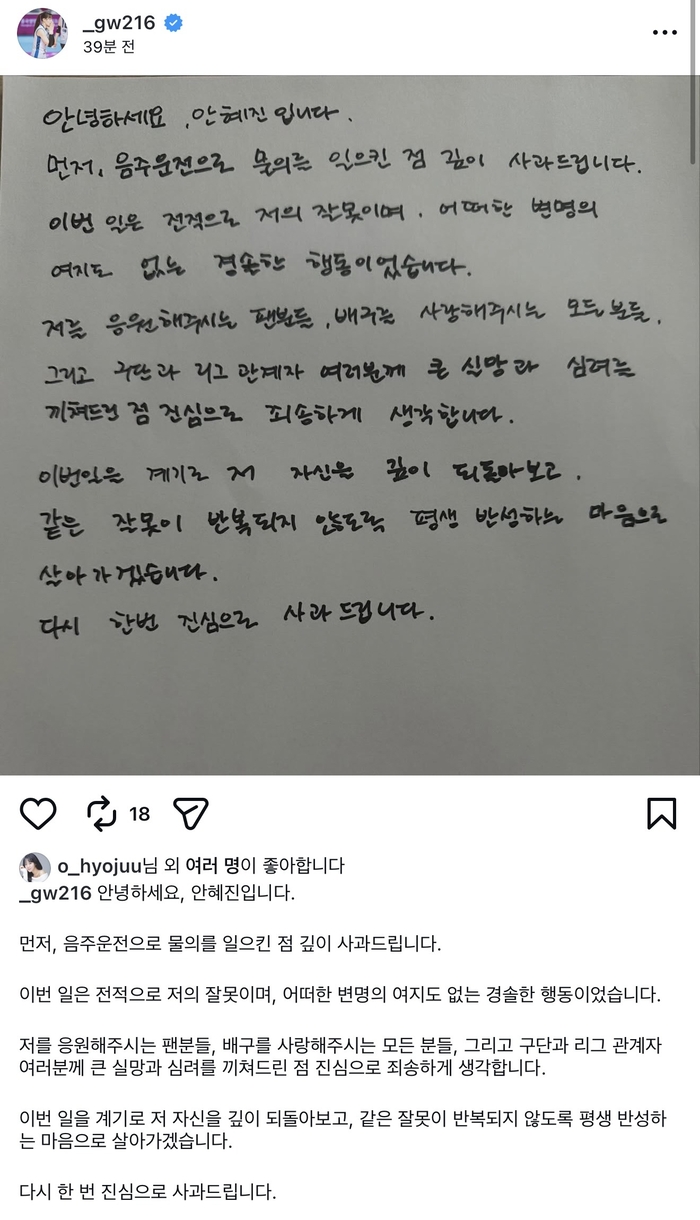 _gw216
39분 전
안녕하세요, 안혜진입니다.
먼저, 음주운전으로 물의를 일으킨 점 깊이 사과드립니다.
이번 일은 전적으로 저의 잘못이며, 어떠한 변명의
여지도 없는 경솔한 행동이었습니다.
저를 응원해주시는 팬분들, 배구를 사랑해주시는 모든 분들,
그리고 구단과 리그 관계자 여러분께 큰 실망과 심려를
끼쳐드린 점 진심으로 죄송하게 생각합니다.
이번일을 계기로 저 자신을 깊이 되돌아보고,
같은 잘못이 반복되지 않도록 평생 반성하는 마음으로
살아가겠습니다.
다시 한번 진심으로 사과드립니다.
18
o_hyojuu님 외 여러 명이 좋아합니다
_gw216 안녕하세요, 안혜진입니다.
먼저, 음주운전으로 물의를 일으킨 점 깊이 사과드립니다.
이번 일은 전적으로 저의 잘못이며, 어떠한 변명의 여지도 없는 경솔한 행동이었습니다.
저를 응원해주시는 팬분들, 배구를 사랑해주시는 모든 분들, 그리고 구단과 리그 관계자
여러분께 큰 실망과 심려를 끼쳐드린 점 진심으로 죄송하게 생각합니다.
이번 일을 계기로 저 자신을 깊이 되돌아보고, 같은 잘못이 반복되지 않도록 평생 반성하
는 마음으로 살아가겠습니다.
다시 한 번 진심으로 사과드립니다.